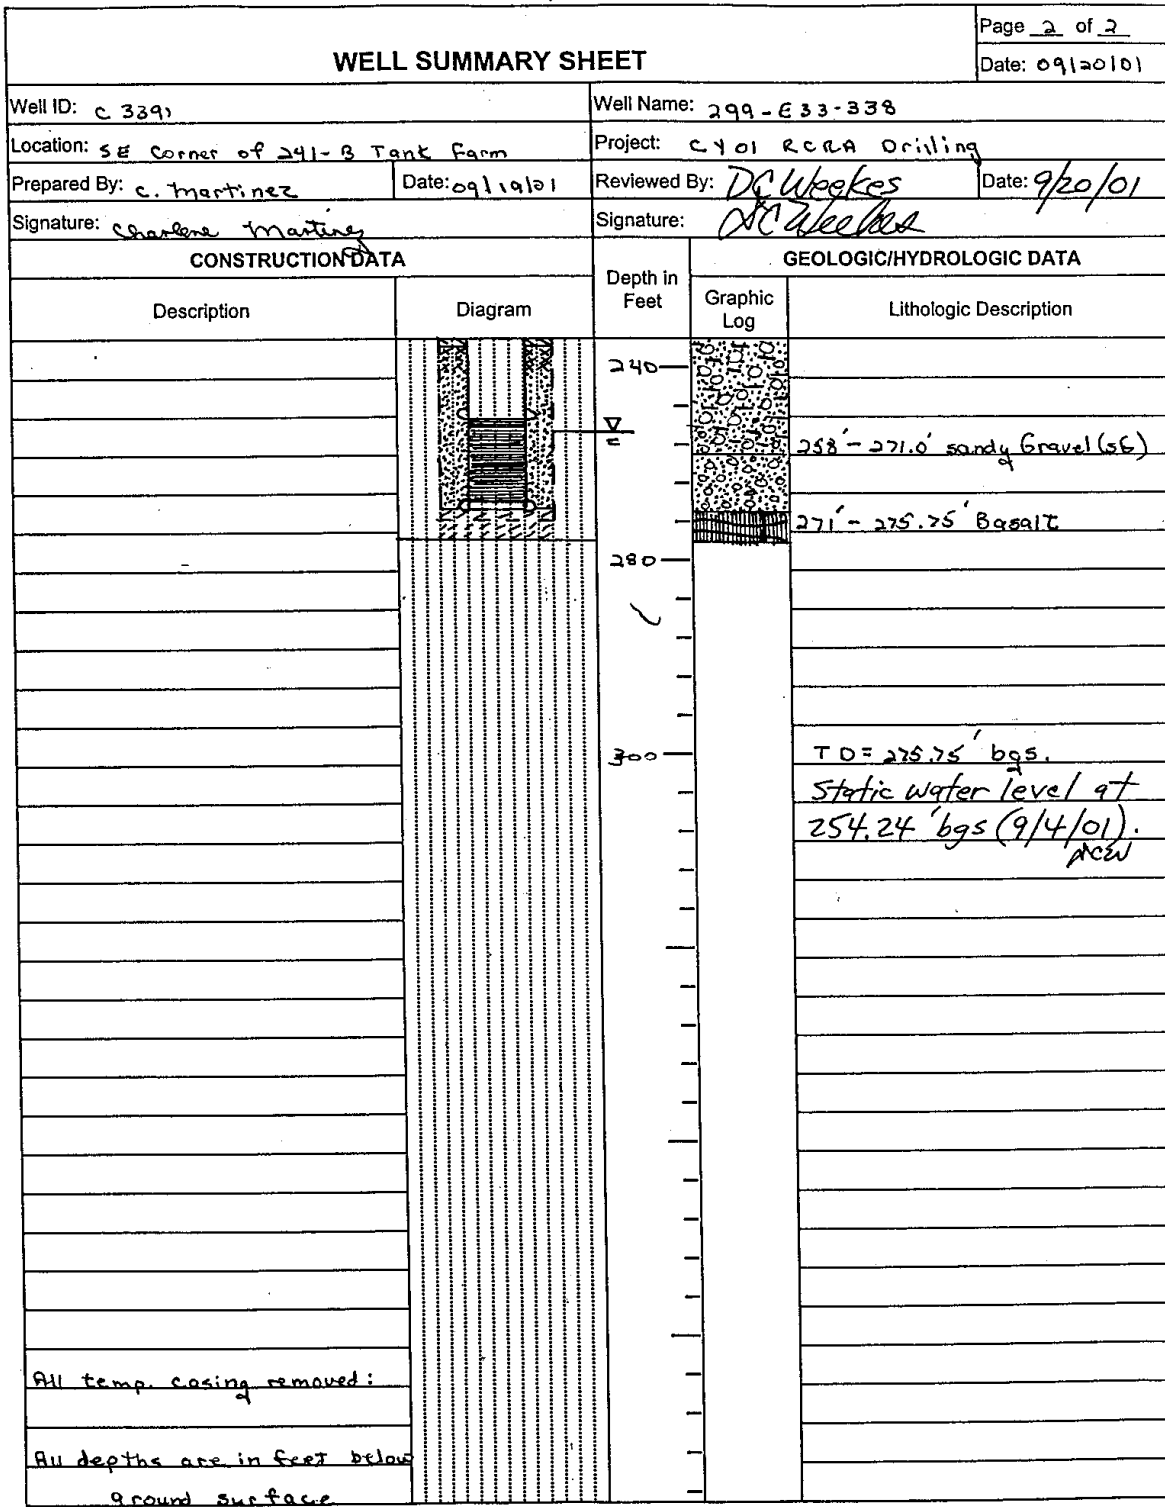 Page 2 of 2
WELL SUMMARY SHEET
Date: 09/20/01
Well ID: C 3391
Well Name: 299-E33-338
Location: SE Corner of 241-B Tank Farm
Project: CY01 RCRA Drilling
Prepared By: C. Martinez
Date: 09/19/01
Reviewed By: DC Weekes
Date: 9/20/01
Signature: Charlene Martinez
Signature: DC Weekes
CONSTRUCTION DATA
Depth in Feet
GEOLOGIC/HYDROLOGIC DATA
Description
Diagram
Graphic Log
Lithologic Description
240
258' - 271.0' sandy Gravel (sG)
271' - 275.75' Basalt
280
300
TD = 275.75' bgs.
Static water level at
254.24' bgs (9/4/01).
DCW
All temp. casing removed:
All depths are in feet below
ground surface